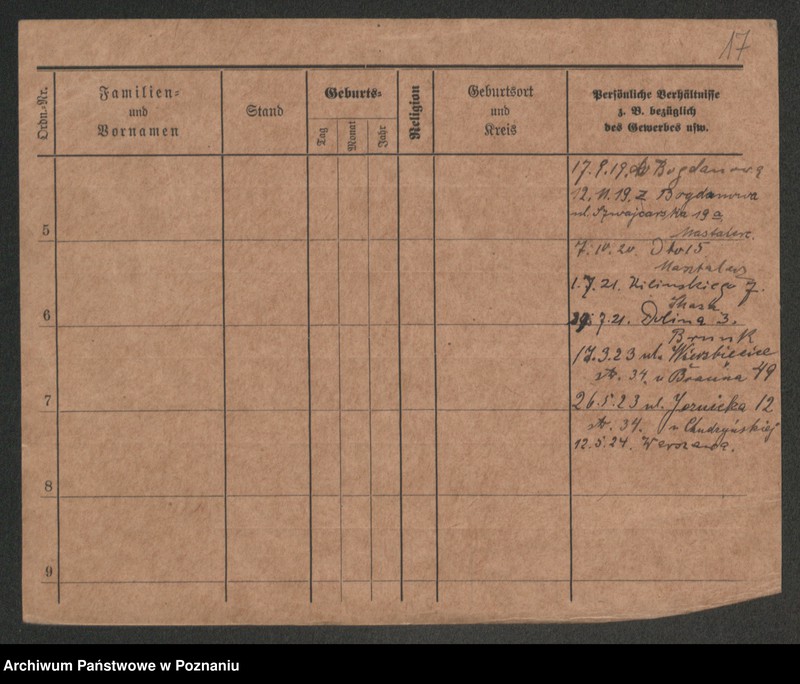 17
Ordn.-Nr.
Familien-
und
Vornamen
Stand
Geburts-
Tag
Monat
Jahr
Religion
Geburtsort
und
Kreis
Persönliche Verhältnisse
z. B. bezüglich
des Gewerbes usw.
17.9.19. do Bogdanowa
12.11.19. z Bogdanowa
ul. Szwajcarska 19a
5
7.10.20.
1.7.21. Kilinskiego 7.
6
29.7.21. Dolina 3.
Brunk
17.3.23 ul. Wierzbiecice
34. u Brauna 49
7
26.5.23 ul. 12
34. u Chudzyńskiej
12.5.24. Warszawa.
8
9
Archiwum Państwowe w Poznaniu